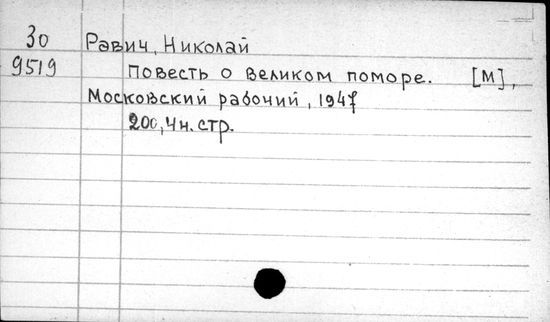 30 Равич, Николай
9519 Повесть о великом поморе. [М],
Московский рабочий, 1947
200, 4н. стр.